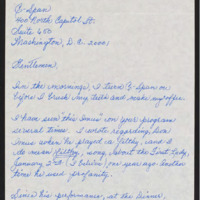 C-Span
400 North Capitol St.
Suite 650
Washington, D.C. 20001
Gentlemen:
In the mornings, I turn C-Span on
before I brush my teeth and make my coffee.
I have seen this "Imus" on your program
several times. I wrote regarding Don
Imus when he played a filthy, (and I
do mean filthy,) song about the First Lady,
January 2nd (I believe) on your airing
time he used profanity.
Since his performance, at the dinner,